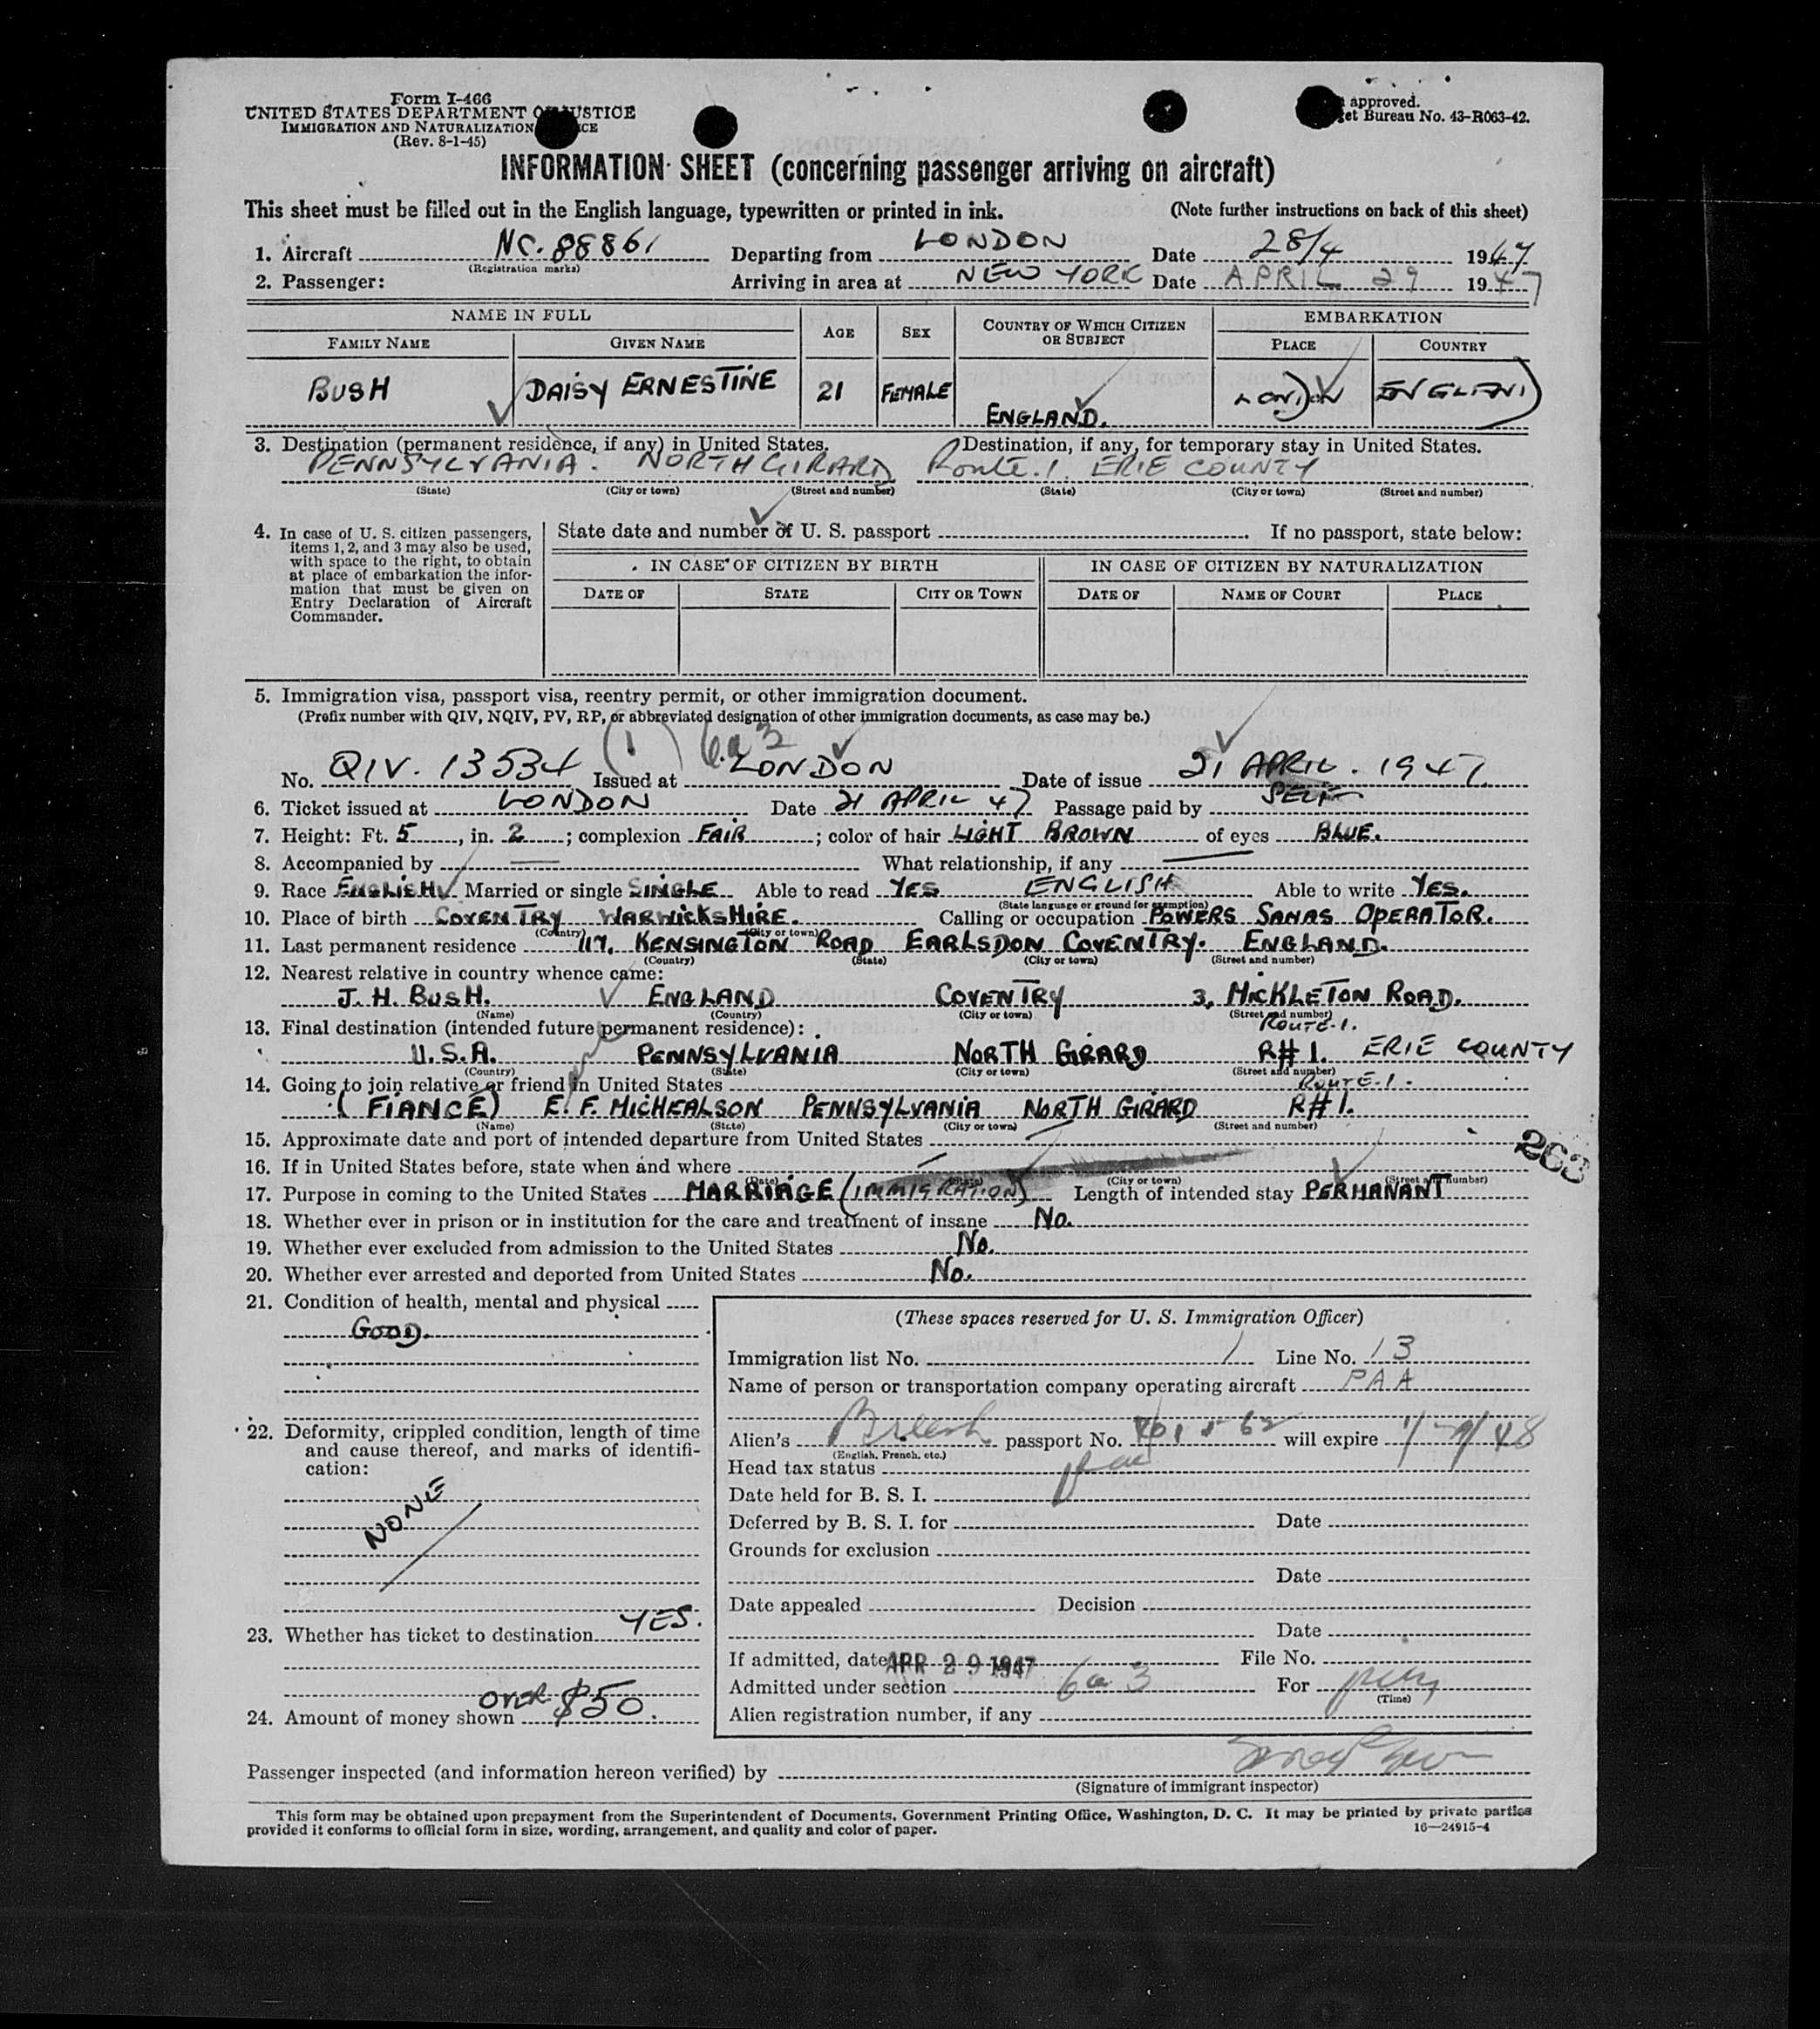 Form I-466
UNITED STATES DEPARTMENT OF JUSTICE
IMMIGRATION AND NATURALIZATION
(Rev. 8-1-45)
approved.
Bureau No. 43-R063-42.
INFORMATION SHEET (concerning passenger arriving on aircraft)
This sheet must be filled out in the English language, typewritten or printed in ink. (Note further instructions on back of this sheet)
1. Aircraft NC. 88861 Departing from LONDON Date 28/4 1947
(Registration marks)
2. Passenger: Arriving in area at NEW YORK Date APRIL 29 1947
NAME IN FULL AGE SEX COUNTRY OF WHICH CITIZEN OR SUBJECT EMBARKATION
FAMILY NAME GIVEN NAME PLACE COUNTRY
BUSH DAISY ERNESTINE 21 FEMALE ENGLAND. LONDON ENGLAND
3. Destination (permanent residence, if any) in United States. Destination, if any, for temporary stay in United States.
PENNSYLVANIA. NORTH GIRARD Route. 1. ERIE COUNTY
(State) (City or town) (Street and number) (State) (City or town) (Street and number)
4. In case of U. S. citizen passengers,
items 1, 2, and 3 may also be used,
with space to the right, to obtain
at place of embarkation the infor-
mation that must be given on
Entry Declaration of Aircraft
Commander.
State date and number of U. S. passport . If no passport, state below:
IN CASE OF CITIZEN BY BIRTH IN CASE OF CITIZEN BY NATURALIZATION
DATE OF STATE CITY OR TOWN DATE OF NAME OF COURT PLACE
5. Immigration visa, passport visa, reentry permit, or other immigration document.
(Prefix number with QIV, NQIV, PV, RP, or abbreviated designation of other immigration documents, as case may be.)
(1) 6a3
No. QIV. 13534 Issued at LONDON Date of issue 21 APRIL. 1947.
6. Ticket issued at LONDON Date 21 APRIL 47 Passage paid by SELF
7. Height: Ft. 5, in. 2; complexion FAIR; color of hair LIGHT BROWN of eyes BLUE.
8. Accompanied by — What relationship, if any —
9. Race ENGLISH Married or single SINGLE Able to read YES ENGLISH Able to write YES.
(State language or ground for exemption)
10. Place of birth COVENTRY WARWICKSHIRE. Calling or occupation POWERS SAMAS OPERATOR.
(Country) (City or town)
11. Last permanent residence 117, KENSINGTON ROAD EARLSDON COVENTRY. ENGLAND.
(Country) (State) (City or town) (Street and number)
12. Nearest relative in country whence came:
J. H. BUSH. ENGLAND COVENTRY 3, MICKLETON ROAD.
(Name) (Country) (City or town) (Street and number)
13. Final destination (intended future permanent residence): ROUTE-1.
U.S.A. PENNSYLVANIA NORTH GIRARD R# 1. ERIE COUNTY
(Country) (State) (City or town) (Street and number)
14. Going to join relative or friend in United States ROUTE-1.
(FIANCÉ) E. F. MICHEALSON PENNSYLVANIA NORTH GIRARD R# 1.
(Name) (State) (City or town) (Street and number)
15. Approximate date and port of intended departure from United States
263
16. If in United States before, state when and where
(Date) (State) (City or town) (Street and number)
17. Purpose in coming to the United States MARRIAGE (IMMIGRATION) Length of intended stay PERMANANT
18. Whether ever in prison or in institution for the care and treatment of insane No.
19. Whether ever excluded from admission to the United States No.
20. Whether ever arrested and deported from United States No.
21. Condition of health, mental and physical
GOOD.
22. Deformity, crippled condition, length of time
and cause thereof, and marks of identifi-
cation:
NONE
23. Whether has ticket to destination YES.
24. Amount of money shown OVER $50.
(These spaces reserved for U. S. Immigration Officer)
Immigration list No. 1 Line No. 13
Name of person or transportation company operating aircraft PAA
Alien's passport No. will expire
(English, French, etc.)
Head tax status
Date held for B. S. I.
Deferred by B. S. I. for Date
Grounds for exclusion
Date
Date appealed Decision
Date
If admitted, date APR 29 1947 File No.
Admitted under section 6a3 For perm
(Time)
Alien registration number, if any
Passenger inspected (and information hereon verified) by
(Signature of immigrant inspector)
This form may be obtained upon prepayment from the Superintendent of Documents, Government Printing Office, Washington, D. C. It may be printed by private parties
provided it conforms to official form in size, wording, arrangement, and quality and color of paper. 16—24915-4